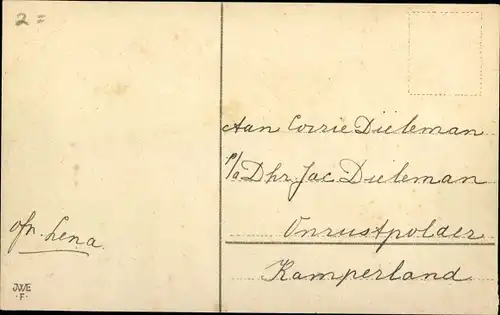 2=
afz. Lena
JWE
·F·
Aan Corrie Dieleman
p/a Dhr Jac Dieleman
Onrustpolder
Kamperland